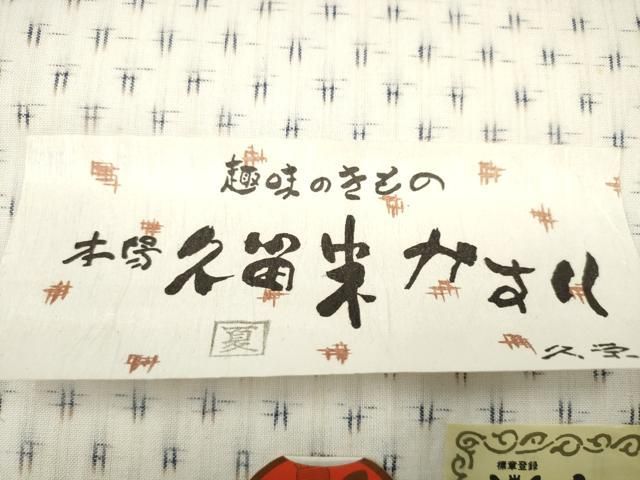 趣味のきもの
本場久留米かすり
夏
標章登録